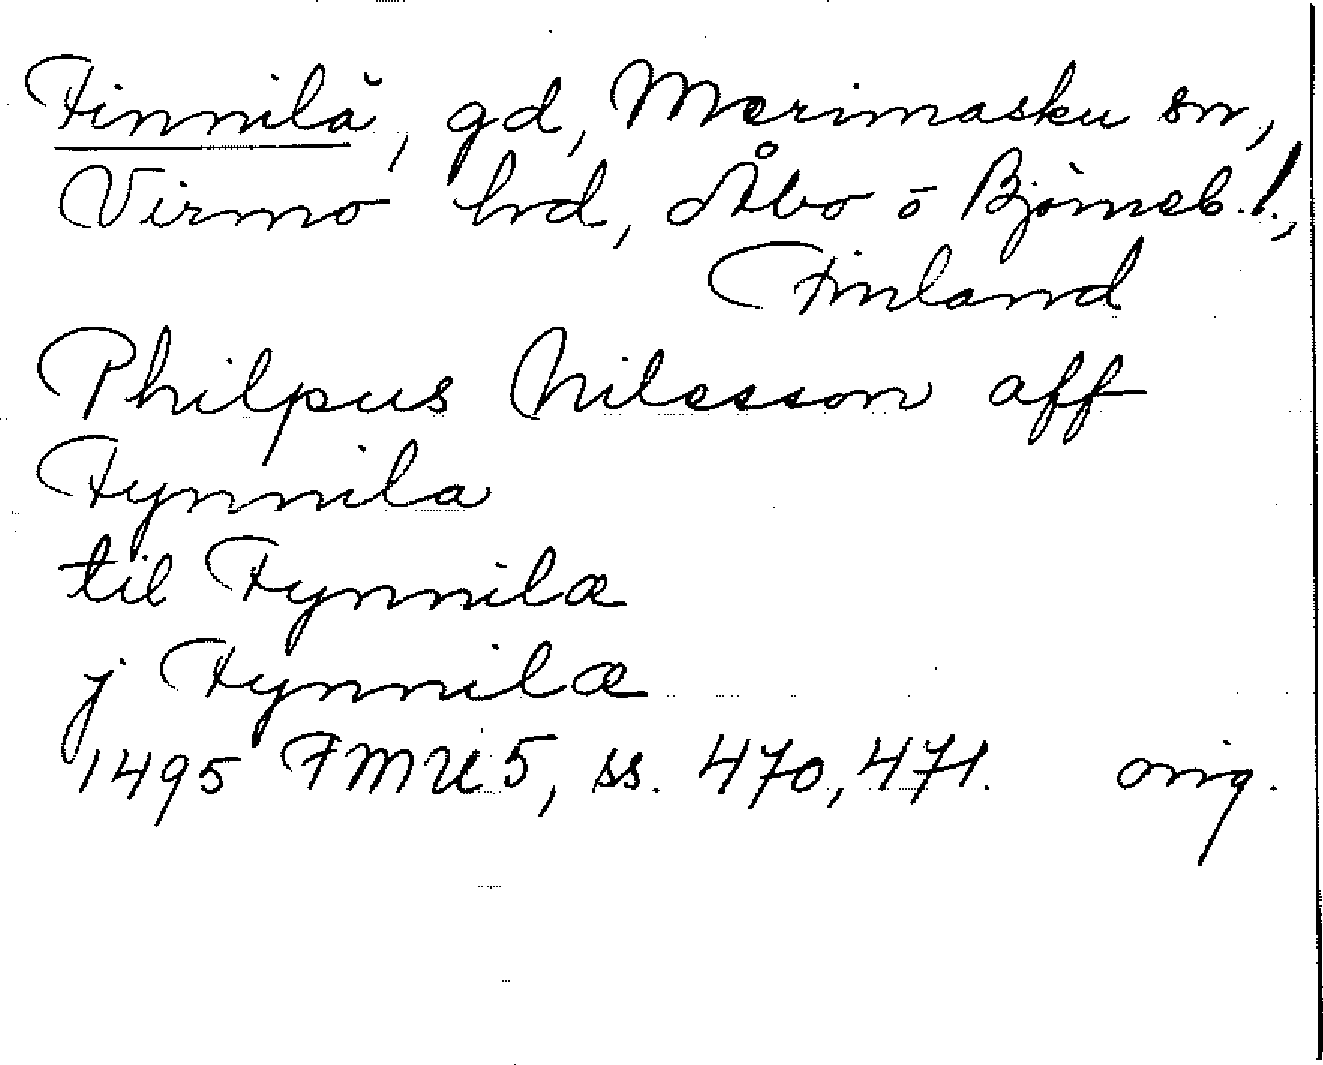 Finnilä, gd, Merimasku sn,
Virmo hd, Åbo o Björneb. l.,
Finland
Philpus Nilsson aff
Fynnila
til Fynnilæ
j Fynnilæ
1495 FMU 5, ss. 470, 471. orig.